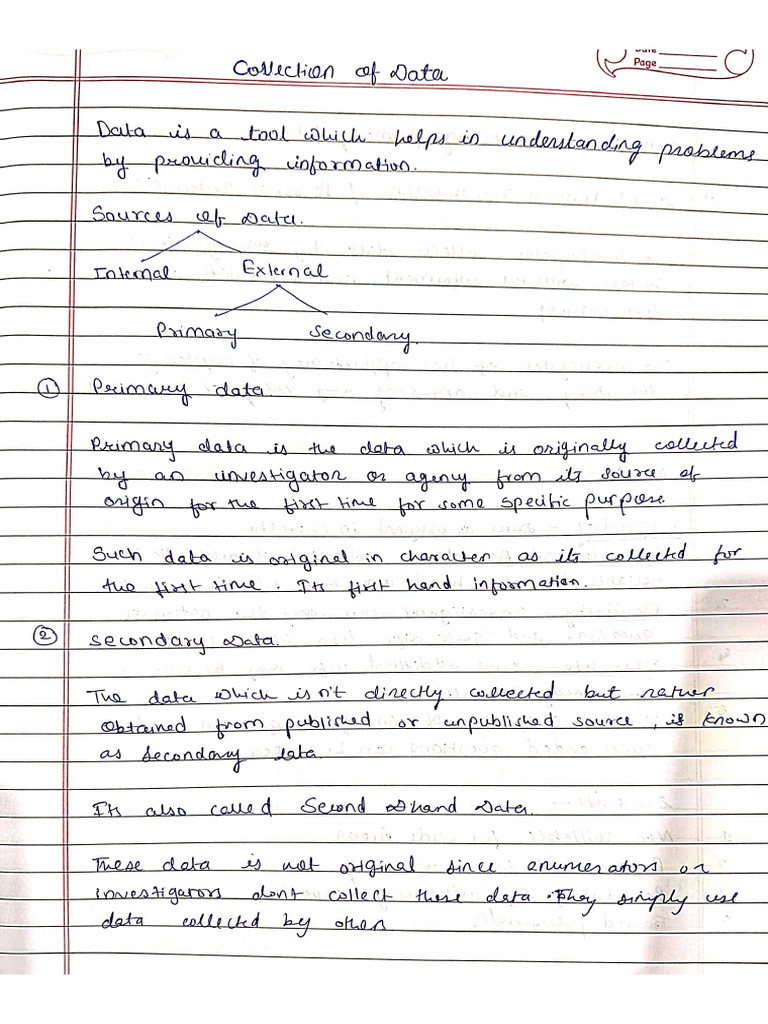 Date
Page
Collection of Data
Data is a tool which helps in understanding problems
by providing information.
Sources of Data.
Internal External
Primary Secondary.
① Primary data.
Primary data is the data which is originally collected
by an investigator or agency from its source of
origin for the first time for some specific purpose.
Such data is original in character as its collected for
the first time. Its first hand information.
② Secondary Data.
The data which isn't directly collected but rather
obtained from published or unpublished source, is known
as secondary data.
Its also called Second hand Data.
These data is not original since enumerators or
investigators dont collect these data. They simply use
data collected by other.